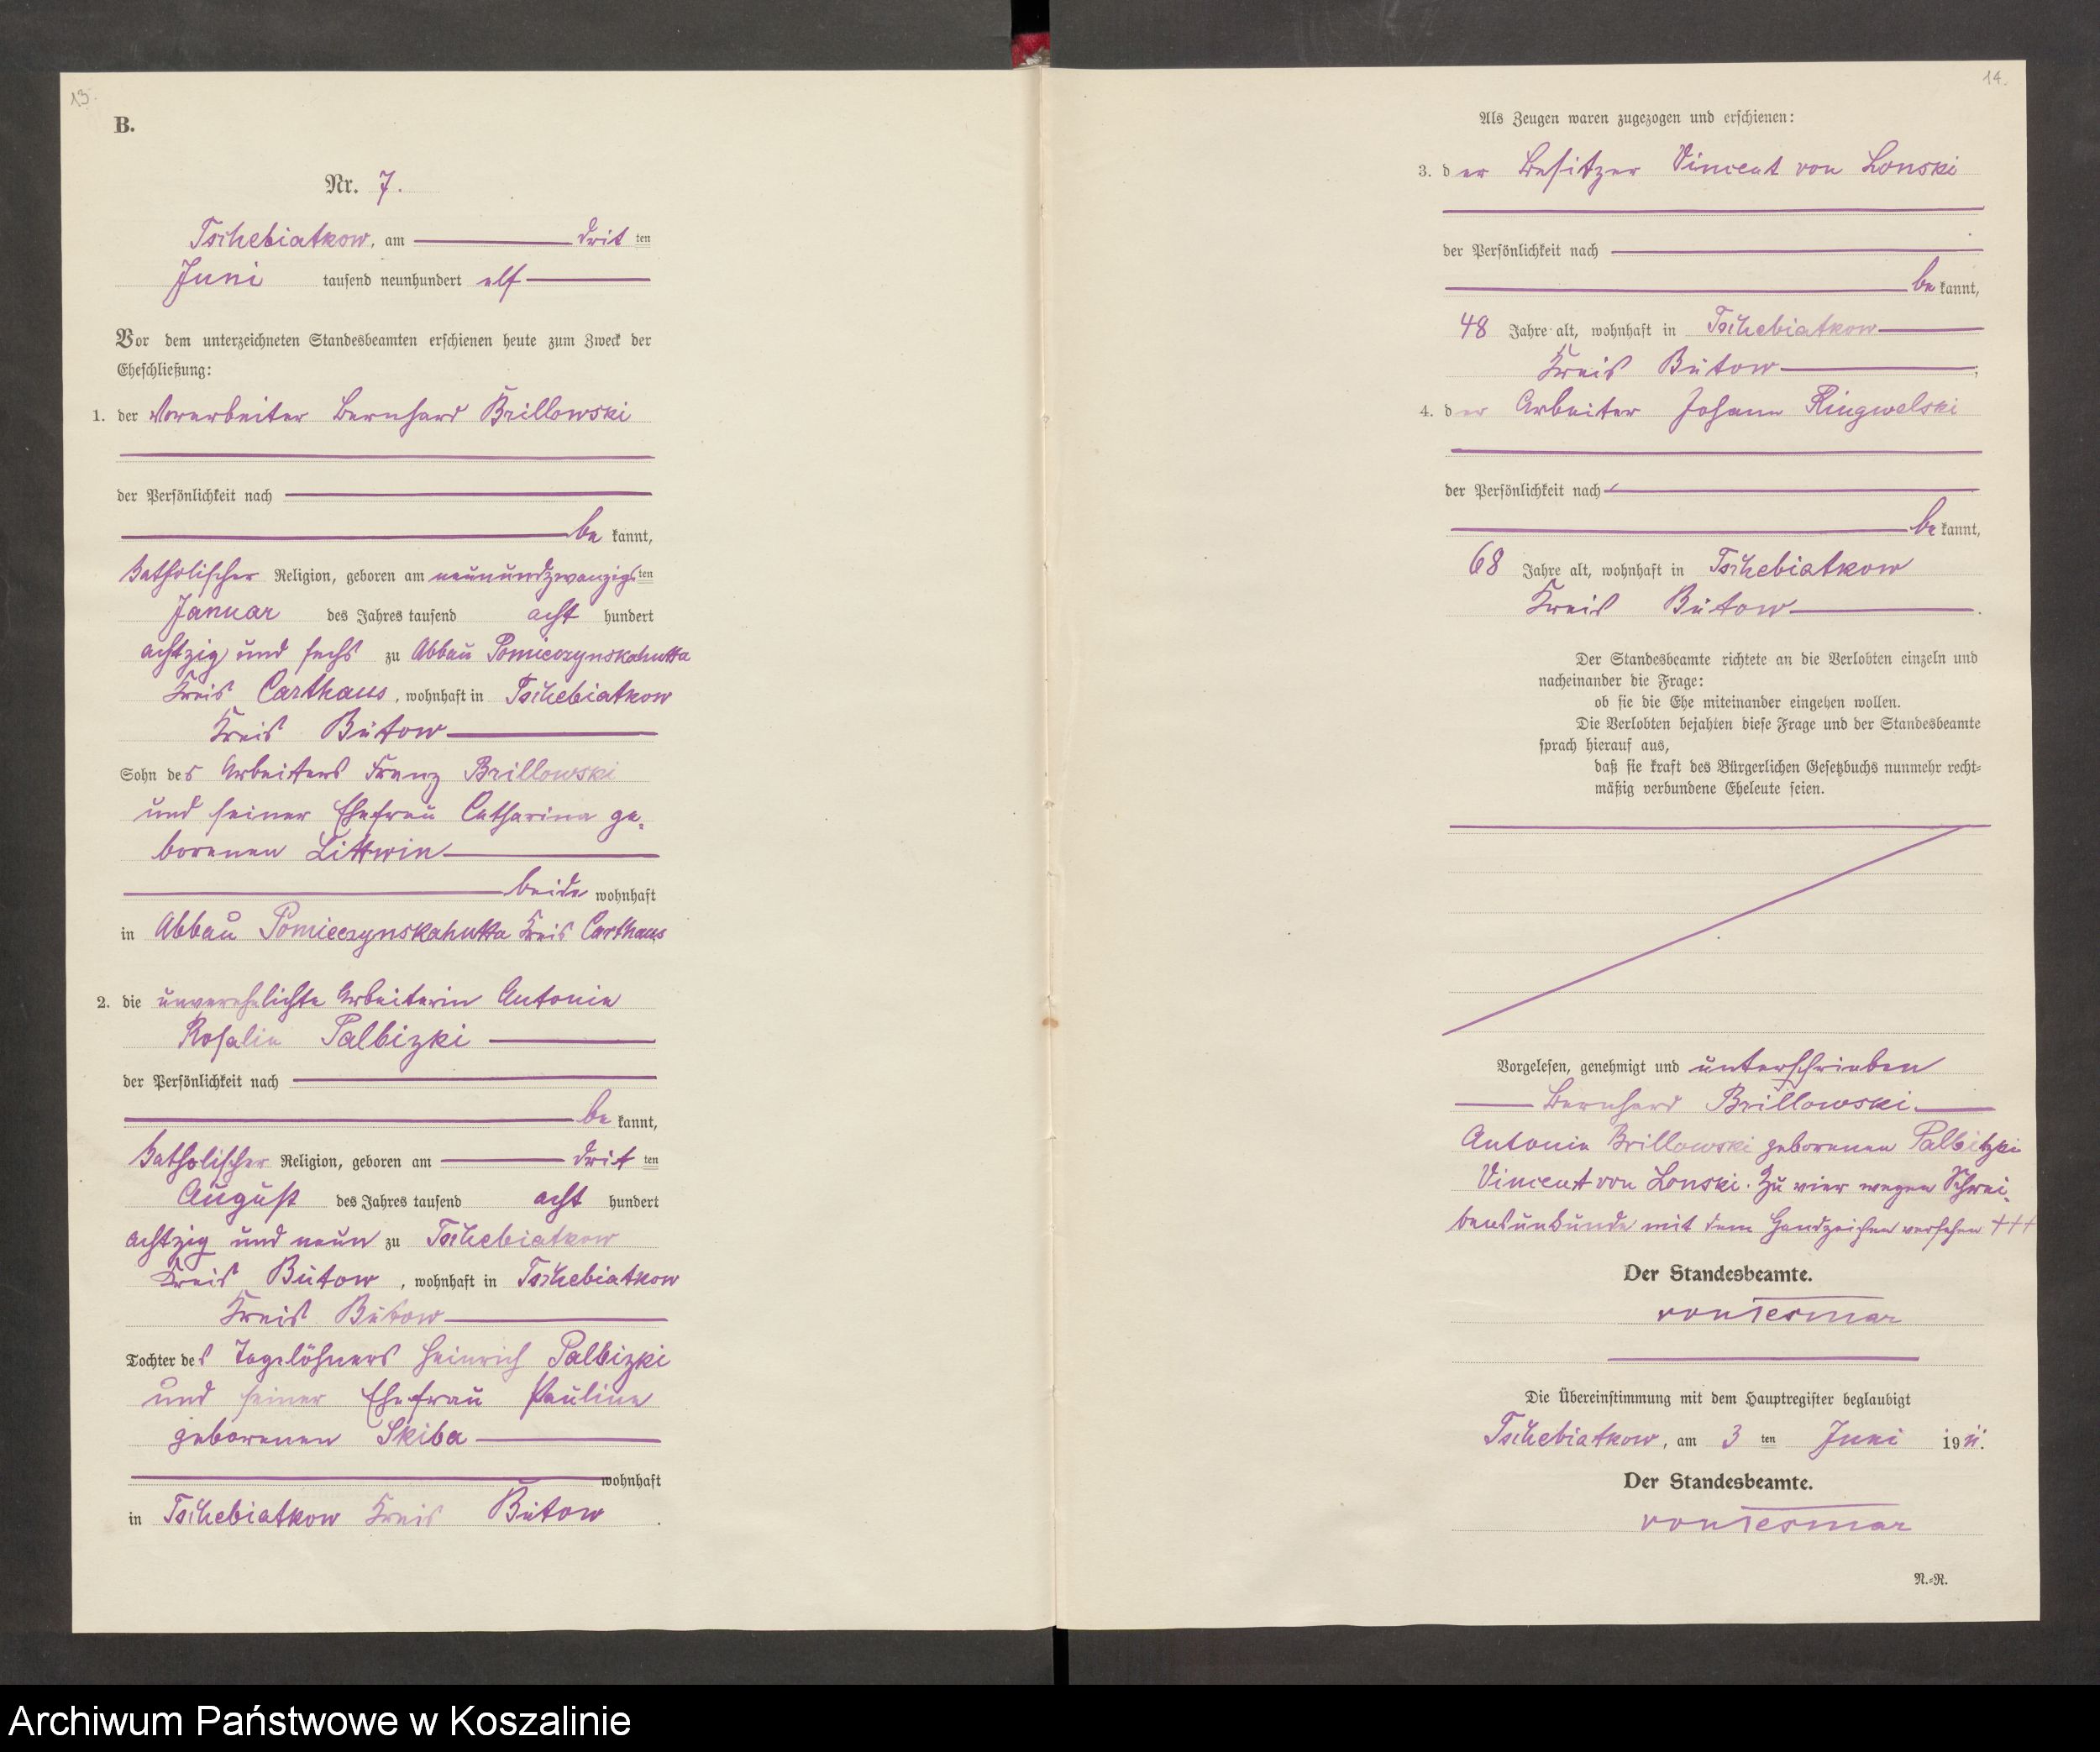 13.
B.
Nr. 7.
Tschebiatkow, am drit ten
Juni tausend neunhundert elf
Vor dem unterzeichneten Standesbeamten erschienen heute zum Zweck der
Eheschließung:
1. der Vorarbeiter Bernhard Brillowski
der Persönlichkeit nach
be kannt,
katholischer Religion, geboren am neunundzwanzigs ten
Januar des Jahres tausend acht hundert
achtzig und sechs zu Abbau Pomieczynskahutta
Kreis Carthaus, wohnhaft in Tschebiatkow
Kreis Bütow
Sohn des Arbeiters Franz Brillowski
und seiner Ehefrau Catharina ge-
borenen Littwin
beide wohnhaft
in Abbau Pomieczynskahutta Kreis Carthaus
2. die unverehelichte Arbeiterin Antonie
Rosalie Palbizki
der Persönlichkeit nach
be kannt,
katholischer Religion, geboren am drit ten
August des Jahres tausend acht hundert
achtzig und neun zu Tschebiatkow
Kreis Bütow, wohnhaft in Tschebiatkow
Kreis Bütow
Tochter des Tagelöhners Heinrich Palbizki
und seiner Ehefrau Pauline
geborenen Skiba
wohnhaft
in Tschebiatkow Kreis Bütow.
14.
Als Zeugen waren zugezogen und erschienen:
3. der Besitzer Vincent von Lonski
der Persönlichkeit nach
be kannt,
48 Jahre alt, wohnhaft in Tschebiatkow
Kreis Bütow;
4. der Arbeiter Johann Ringwelski
der Persönlichkeit nach
be kannt,
68 Jahre alt, wohnhaft in Tschebiatkow
Kreis Bütow.
Der Standesbeamte richtete an die Verlobten einzeln und
nacheinander die Frage:
ob sie die Ehe miteinander eingehen wollen.
Die Verlobten bejahten diese Frage und der Standesbeamte
sprach hierauf aus,
daß sie kraft des Bürgerlichen Gesetzbuchs nunmehr recht-
mäßig verbundene Eheleute seien.
Vorgelesen, genehmigt und unterschrieben
Bernhard Brillowski.
Antonie Brillowski geborenen Palbitzki
Vincent von Lonski. Zu vier wegen Schrei-
bensunkunde mit dem Handzeichen versehen +++
Der Standesbeamte.
von Tesmar
Die Übereinstimmung mit dem Hauptregister beglaubigt
Tschebiatkow, am 3 ten Juni 1911.
Der Standesbeamte.
von Tesmar
N.-R.
Archiwum Państwowe w Koszalinie